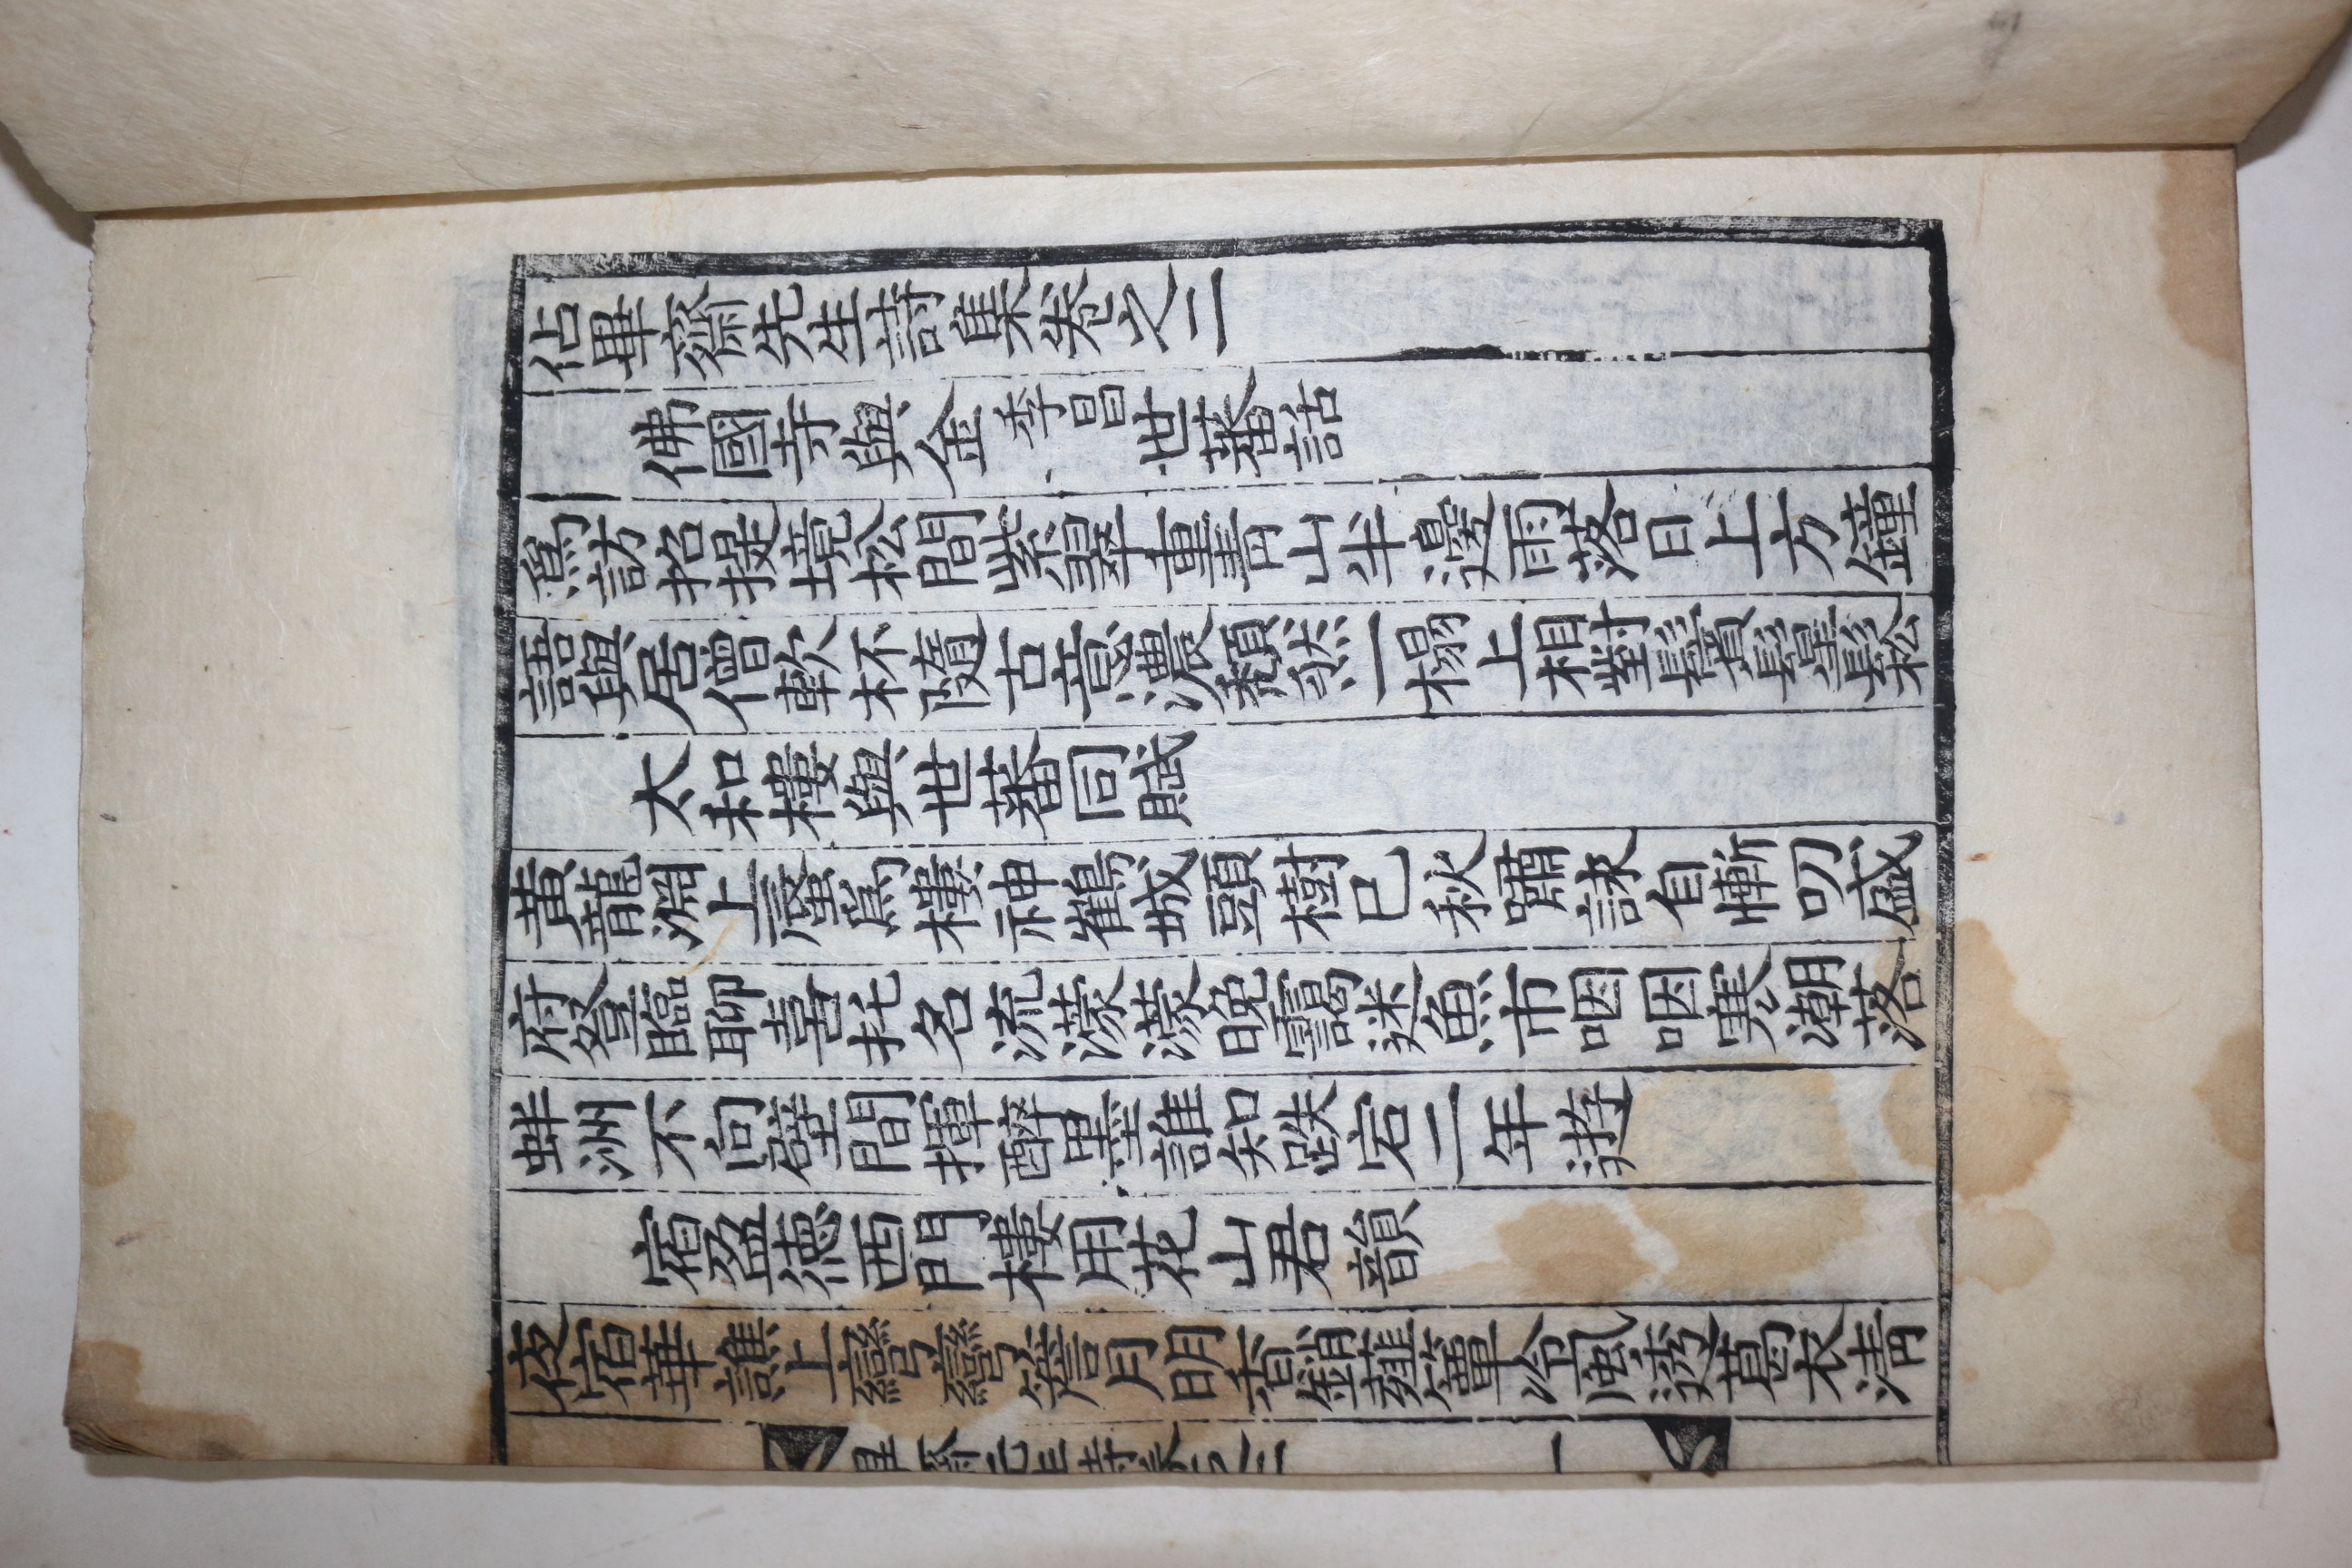 佔畢齋先生詩集卷之二
佛國寺與金季昌世蕃話
爲訪招提境松間紫翠重青山半邊雨落日上方鐘
語與居僧軟杯隨古意濃頹然一榻上相對鬢鬅鬆
太和樓與世蕃同賦
黃龍淵上蜃爲樓神鶴城頭樹已秋嘯詠自慚叨盛
府登臨聊喜托名流濛濛晚靄迷魚市咽咽寒潮落
蚌洲不向壁間揮醉墨誰知跌宕二年遊
宿盈德西門樓用花山君韻
夜宿華譙上彎彎簷月明香銷薤簟冷風透葛衣淸